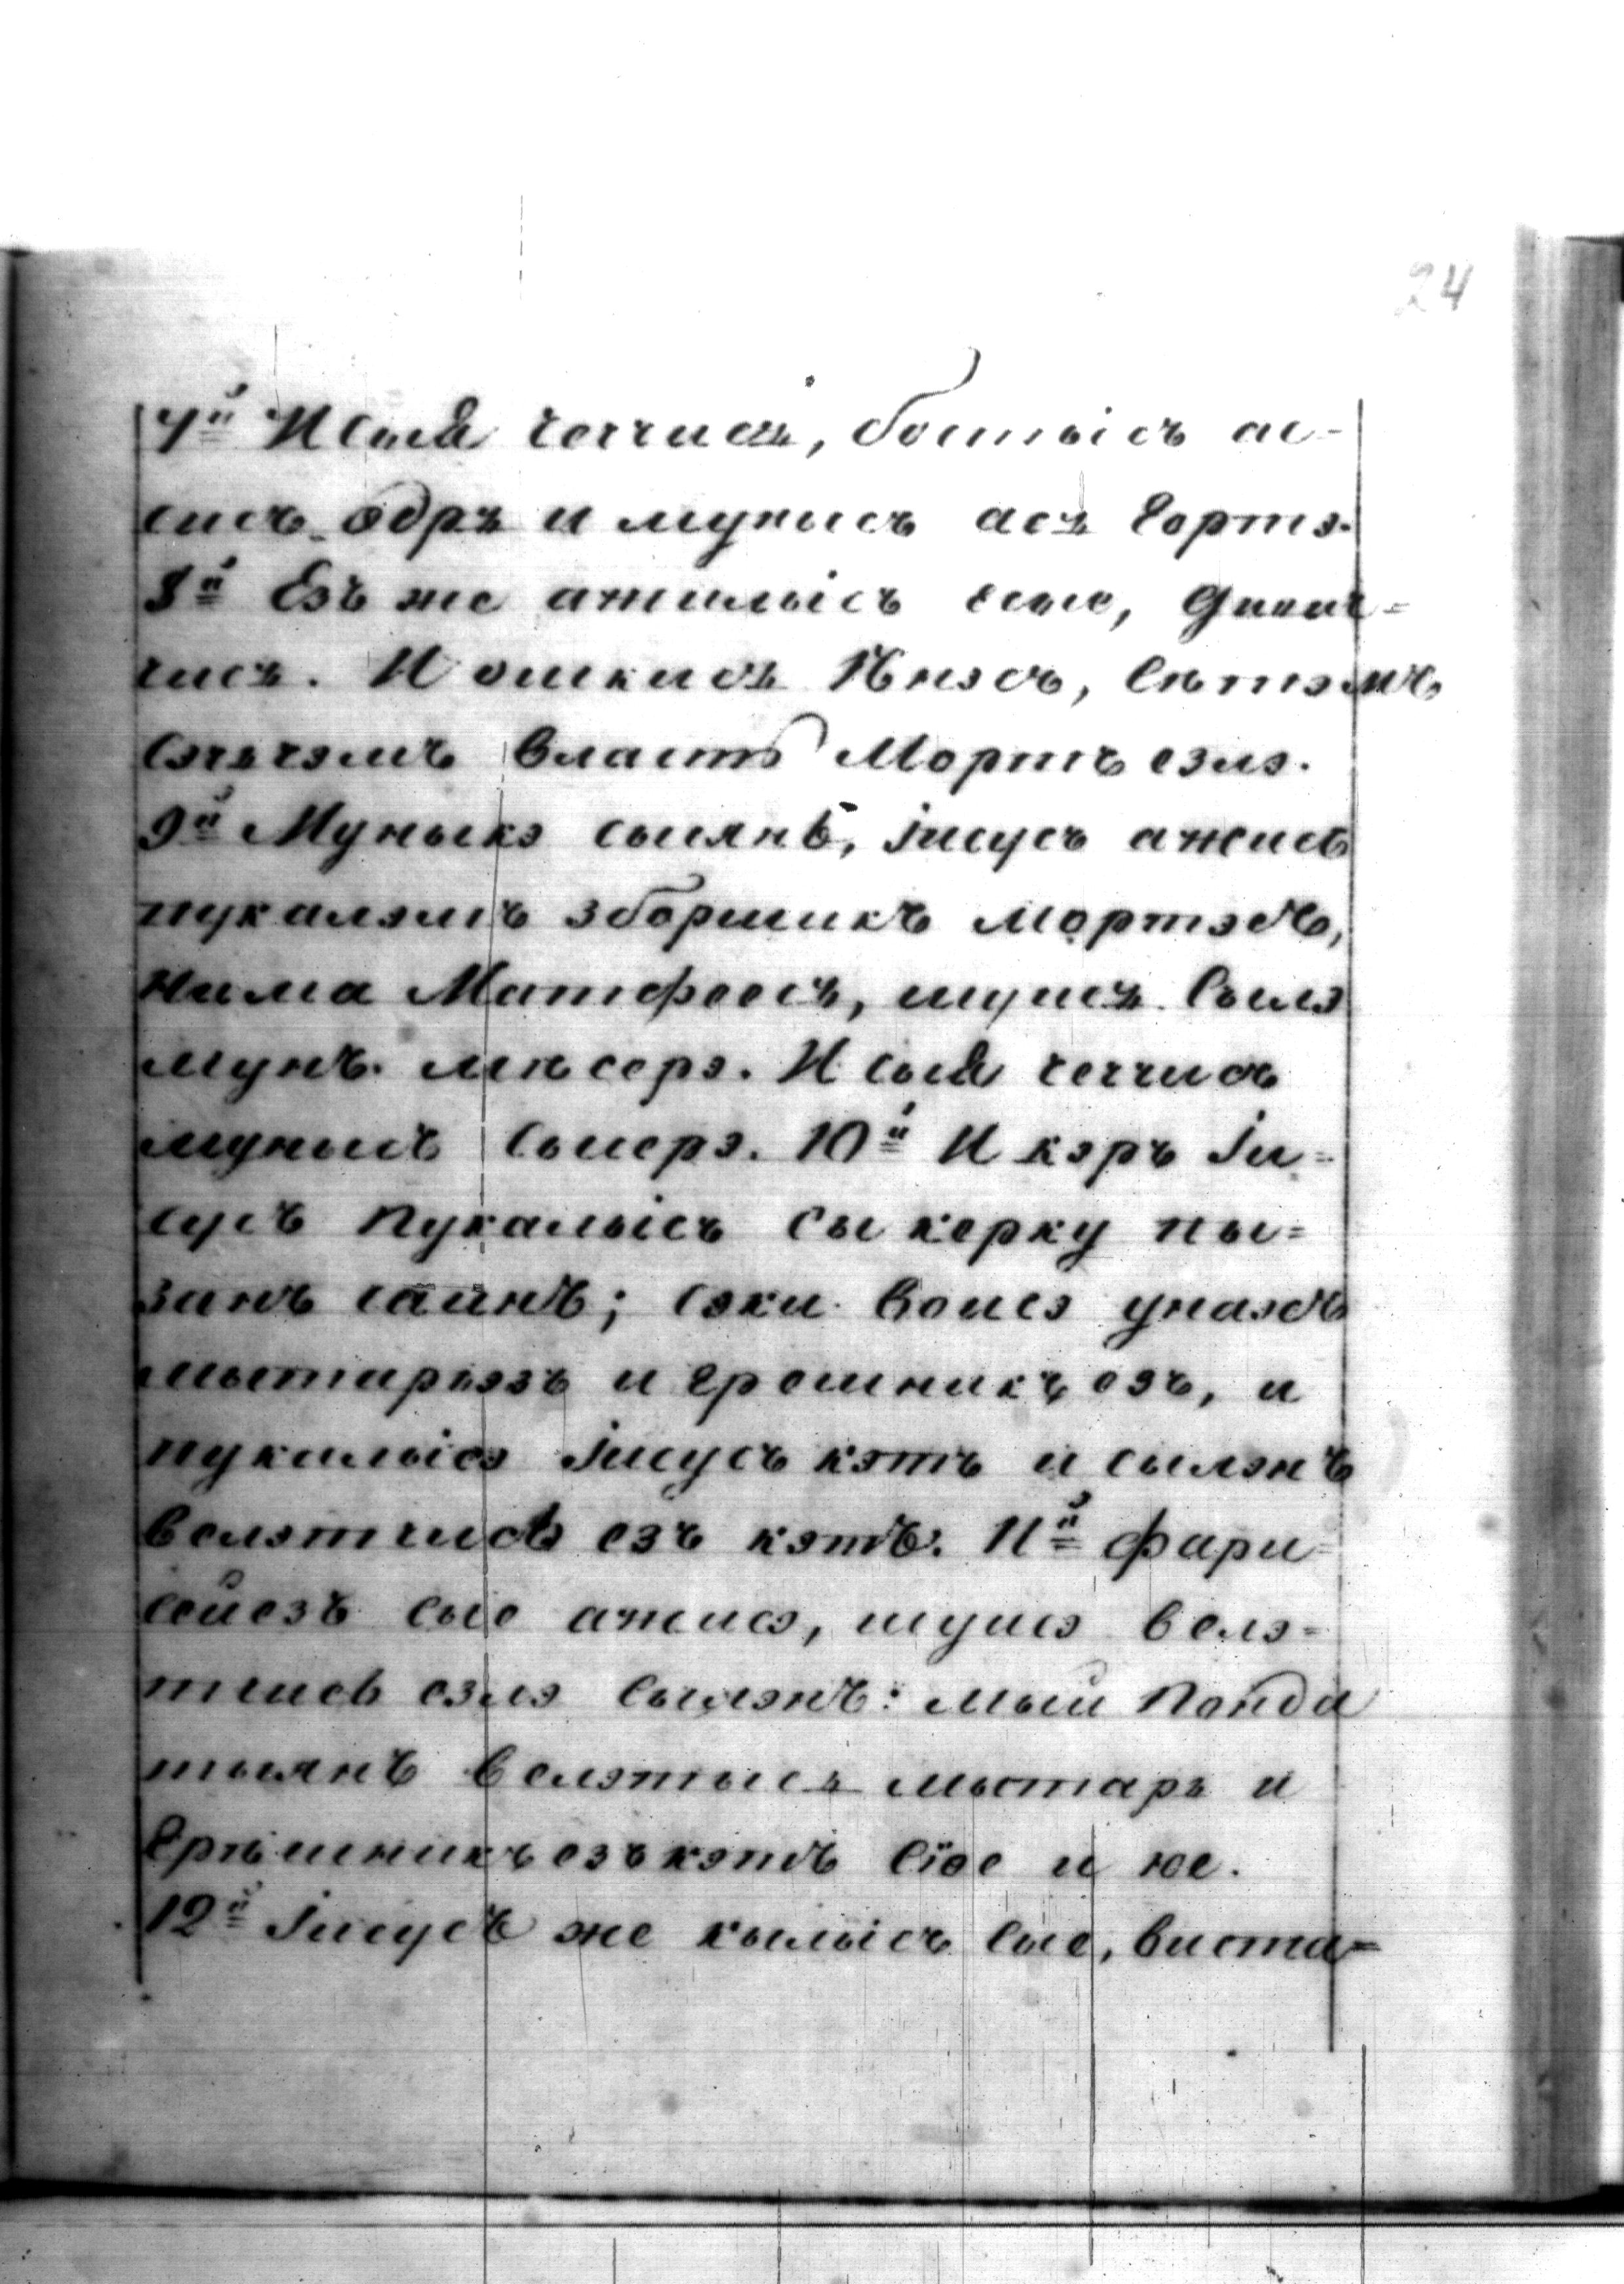 24
7й И сыя чеччисъ, бостысъ ас-
сисъ одръ и мунысъ асъ гортэ.
8й Езъ же ажылысъ сыые, дивит-
чисъ. И ошкисъ Ѣнэсъ, сѣтэмъ
сэчэчэмъ власть Мортъ езлэ.
9й Муныкэ сыянъ, Iисусъ ажисъ
пукалэмъ зборщикъ мортэсъ,
нима Матфеесъ, шуисъ сылэ
мунъ мѣсерэ. И сыя чеччисъ
мунысъ сысерэ. 10й И кэръ Iи=
сусъ пукалысъ сы керку пы=
занъ сайнъ; сэки воисэ унаэсъ
мытаръезъ и грешникъ езъ, и
пукалысэ Iисусъ кэтъ и сылэнъ
велэтчисъ езъ кэтъ. 11й Фари=
сейезъ сые ажисэ, шуисэ велэ=
тчисъ езлэ сылэнъ: мый понда
тыянъ велэтысъ мытаръ и
грѣшникъ езъ кэтъ сiое и юе.
12й Iисусъ же кылысъ сые, виста=